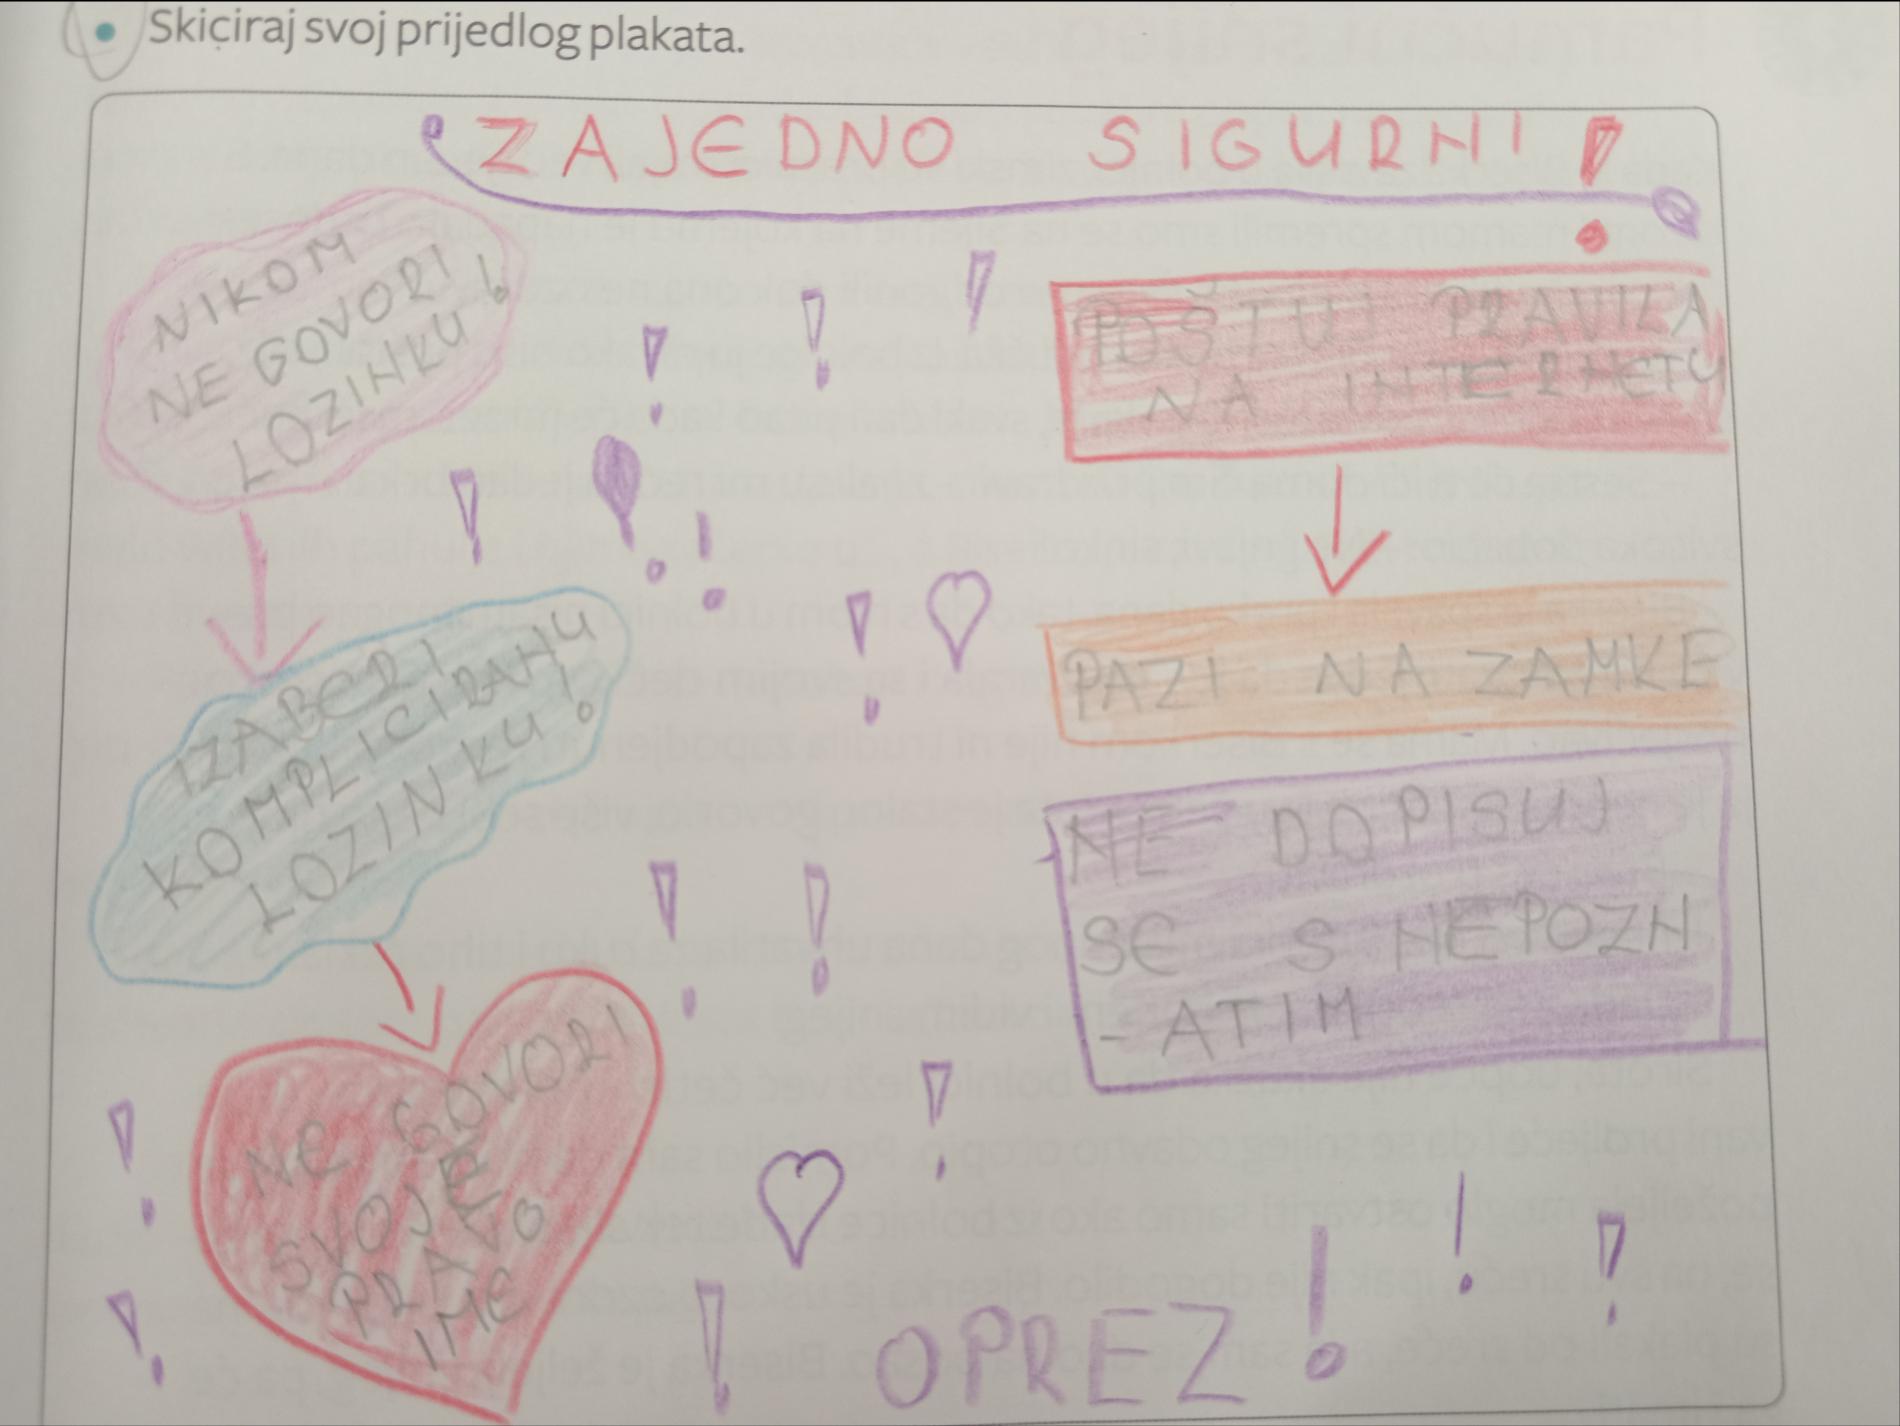 Skiciraj svoj prijedlog plakata.
ZAJEDNO SIGURNI!
NIKOM
NE GOVORI!
LOZINKU
IZABERI
KOMPLICIRANU
LOZINKU!
NE GOVORI
SVOJE
PRAVO
IME
POŠTUJ PRAVILA
NA INTERNETU
PAZI NA ZAMKE
NE DOPISUJ
SE S NEPOZN
-ATIM
OPREZ!